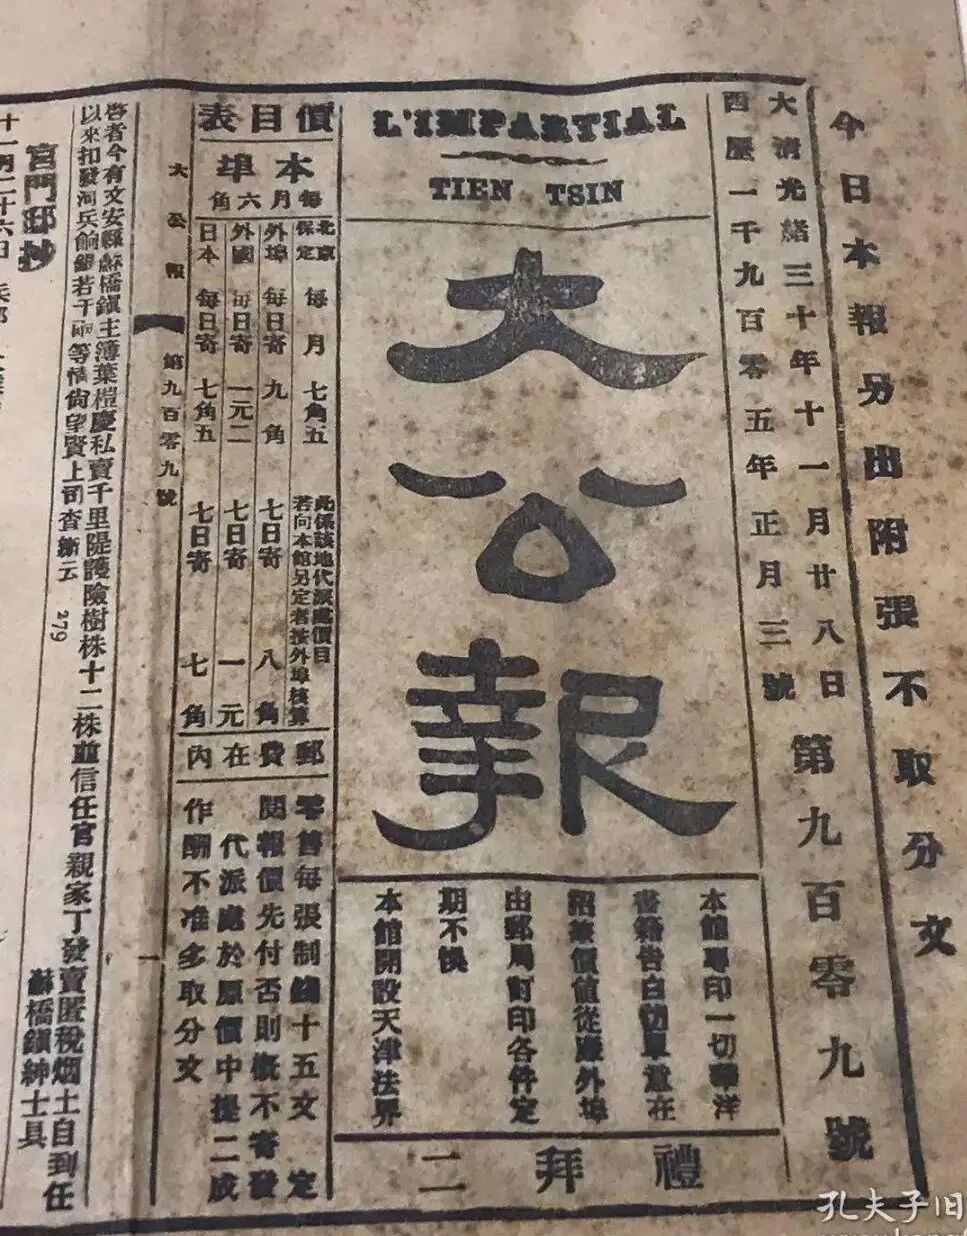 今日本報另出附張不取分文
大清光緒三十年十一月廿八日
西歷一千九百零五年正月三號
第九百零九號
L'IMPARTIAL
TIEN TSIN
大公報
本館專印一切華洋
書籍告白仿單意在
招徠價值從廉外埠
由郵局訂印各件定
期不悞
本館開設天津法界
禮拜二
價目表
本埠
每月六角
北京
保定
每月七角五
此係該地代派處價目
若向本館另定者按外埠核算
外埠 每日寄 九角 七日寄 八角
外國 每日寄 一元二 七日寄 一元
日本 每日寄 七角五 七日寄 七角
郵費在內
零售每張制錢十五文 定
閱報價先付否則槪不寄發
代派處於原價中提二成
作酬不准多取分文
大公報
第九百零九號
一
啓者今有文安縣蘇橋鎭主簿葉橙慶私賣千里隄護險樹株十二株並信任官親家丁發賣匿稅烟土自到任
以來扣發河兵餉銀若干兩等情尙望賢上司查斷云
279
蘇橋鎭紳士具
宮門邸抄
十一月二十六日
孔夫子旧